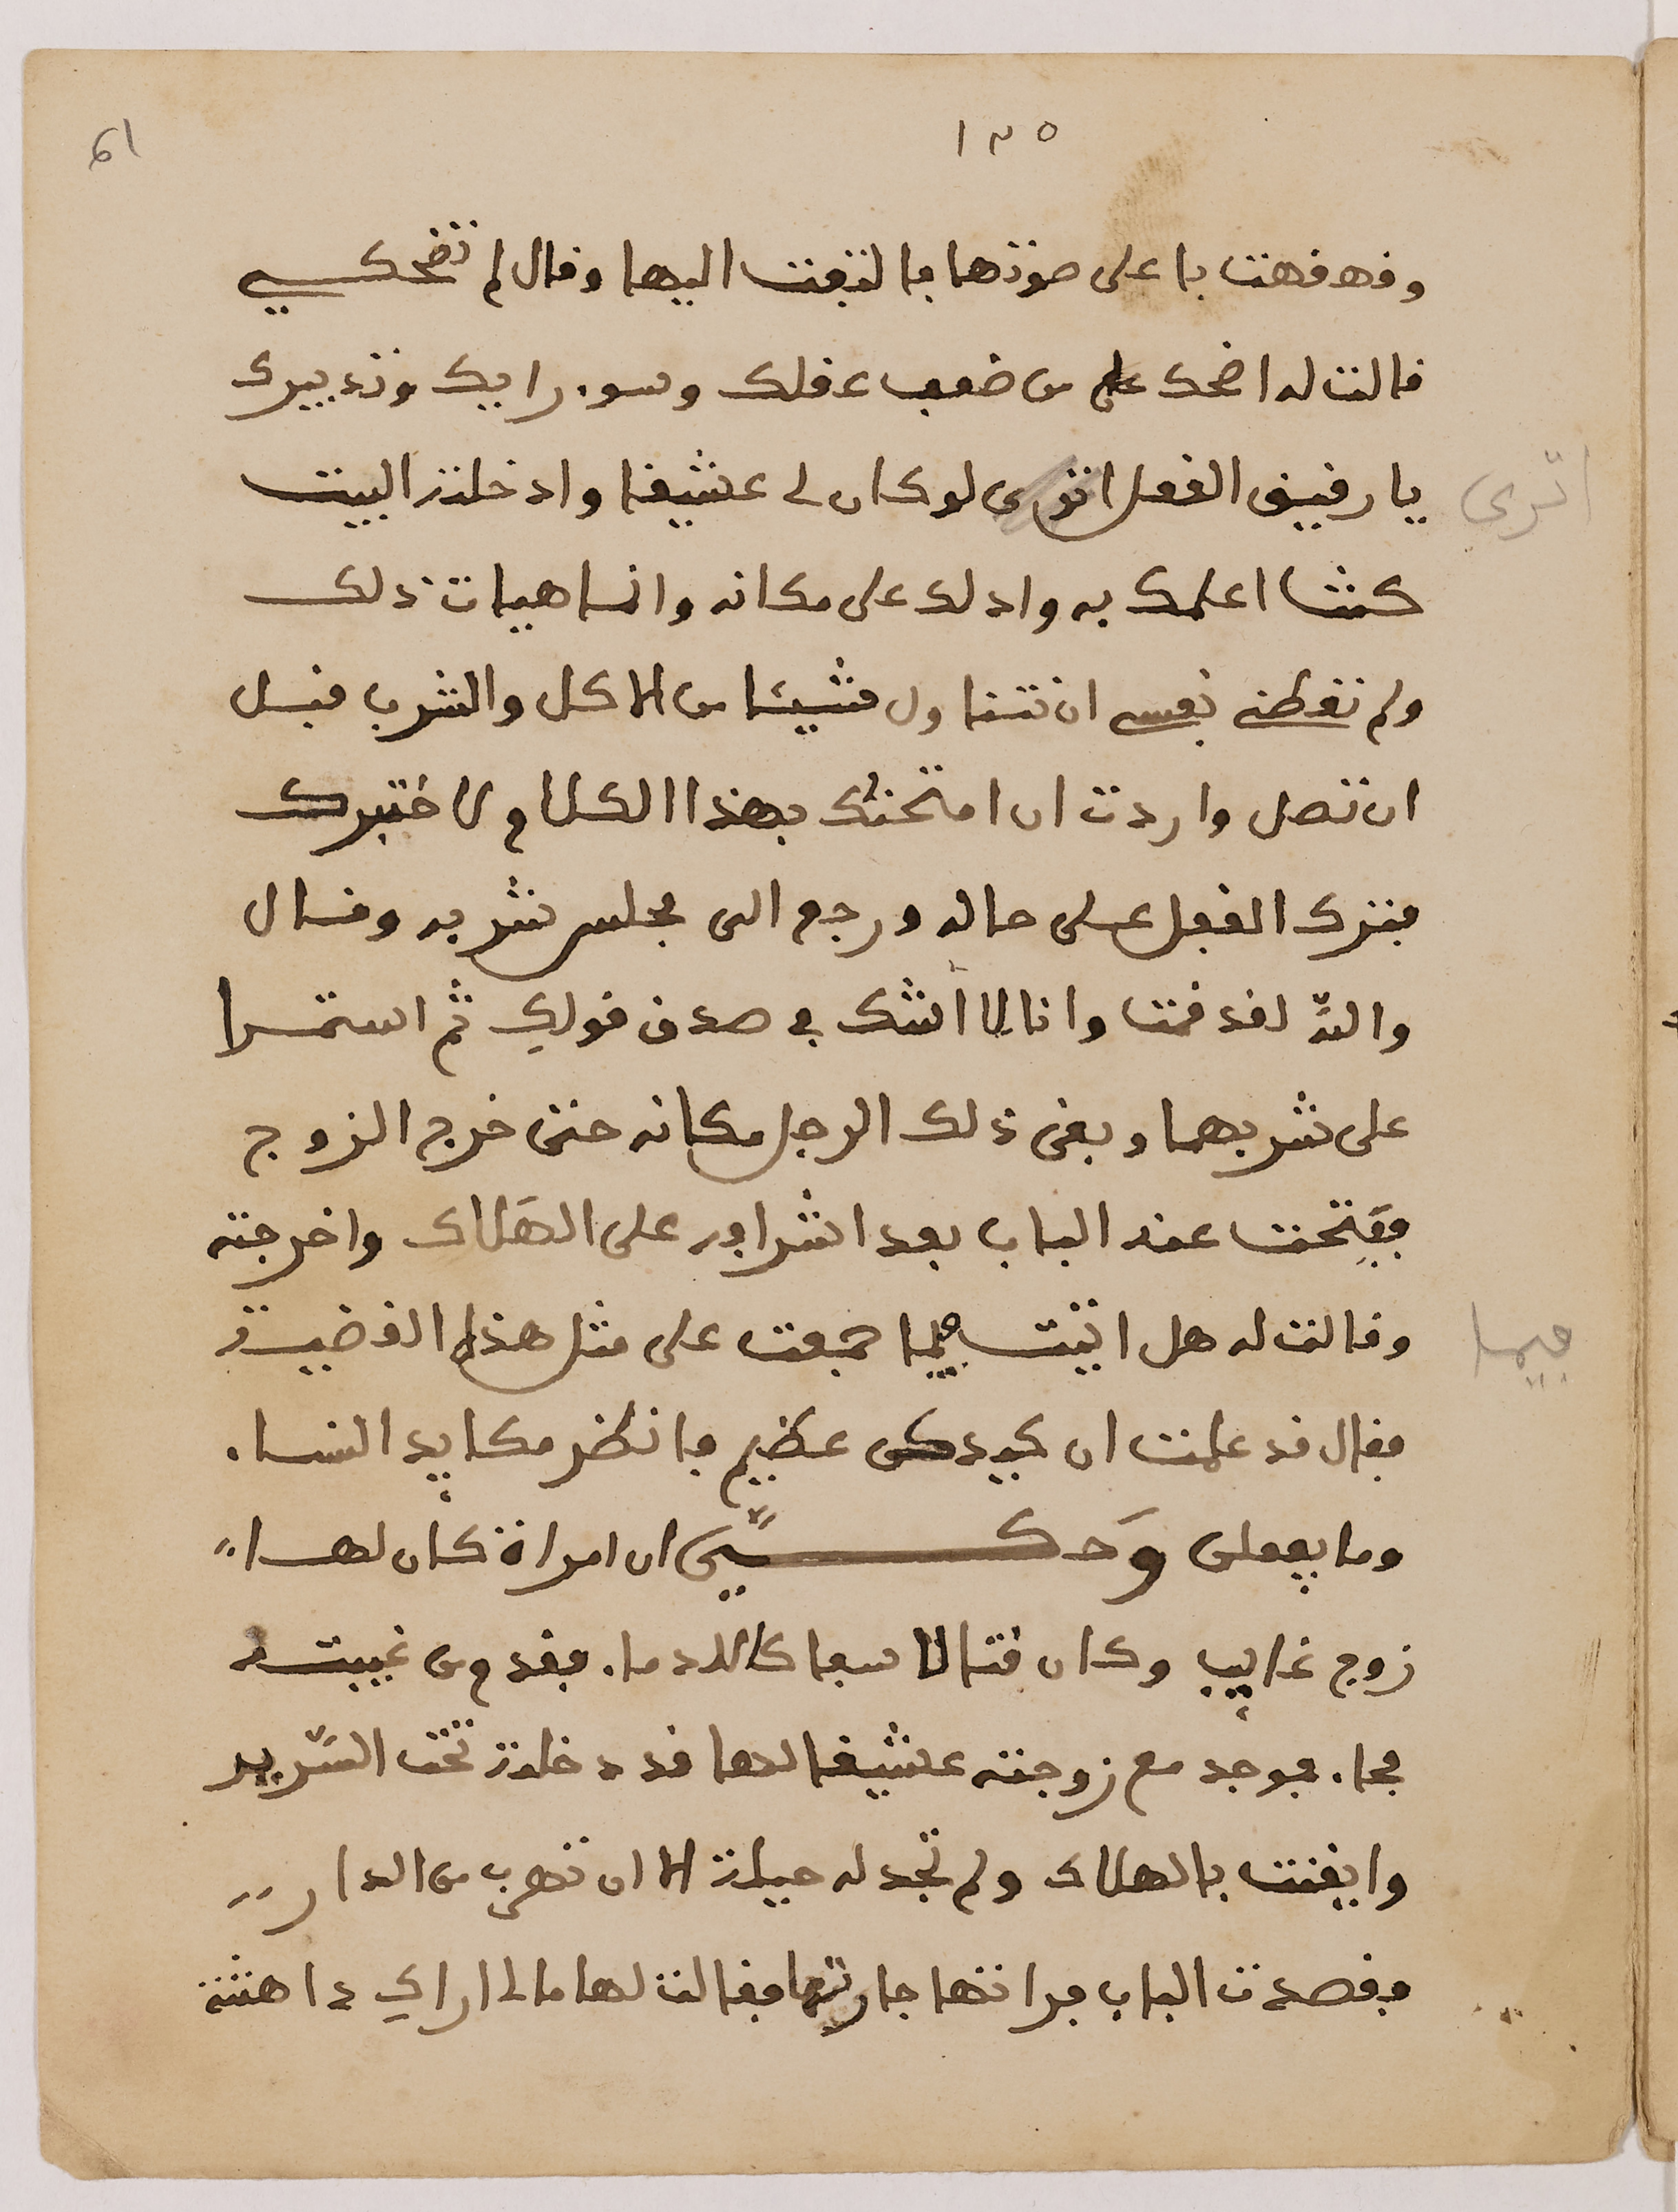 ١٣٥
61
وقهقهت باعلى صوتها فالتفت اليها وقال لم تضحكي
قالت له اضحك على من ضعف عقلك وسوء رايك وتدبيرك
يا رقيق العقل اترى لو كان لي عشيقا وادخلته البيت
اترى
كنت اعلمك به وادلك على مكانه وانما هيات ذلك
ولم تعطني نفسي ان نتناول شيئا من الاكل والشرب قبل
ان تصل واردت ان امتحنك بهذا الكلام لاختبرك
فترك القفل على حاله ورجع الى مجلس شربه وقال
والله لقد قمت وانا لا أشك في صدق قولك ثم استمرا
على شربهما وبقى ذلك الرجل مكانه حتى خرج الزوج
ففتحت عنه الباب بعد اشرافه على الهلاك واخرجته
وقالت له هل اتيت فيما جمعت على مثل هذا القضية
فيما
فقال قد علمت ان كيدكن عظيم فانظر مكايد النساء
وما يفعلن وَحكــــيَ ان امراة كان لها
زوج غايب وكان قتالا سفاكا للدماء فقدم من غيبته
فجاء فوجد مع زوجته عشيقا لها قد دخلته تحت السّرير
وايقنت بالهلاك ولم تجد له حيلة الا ان تهرب من الدار
فقصدت الباب فراتها جارتها فقالت لها مالي اراكي داهشة